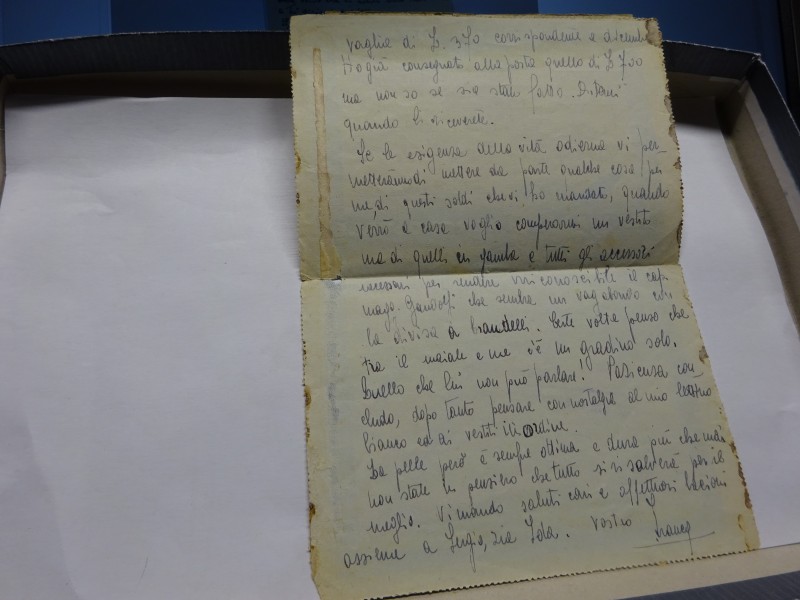 vaglia di L. 370 corrispondente a dicembre
Ho già consegnato alla posta quello di L 700
ma non so se sia stato fatto. Ditemi
quando li riceverete.
Se le esigenze della vita odierna vi per-
metteranno di mettere da parte qualche cosa per
me, di questi soldi che vi ho mandato, quando
verrò a casa voglio comperarmi un vestito
ma di quelli in gamba e tutti gli accessori
necessari per rendere irriconoscibile il cap.
magg. Gandolfi che sembra un vagabondo con
la divisa a brandelli. Certe volte penso che
tra il maiale e me c'è un gradino solo.
Quello che lui non può parlare! Pazienza con-
cludo, dopo tanto pensare con nostalgia al mio lettino
bianco ed ai vestiti in ordine.
La pelle però è sempre ottima e dura più che mai
non state in pensiero che tutto si risolverà per il
meglio. Vi mando saluti cari e affettuosi bacioni
assieme a Sergio, zia Lola. Vostro Franco